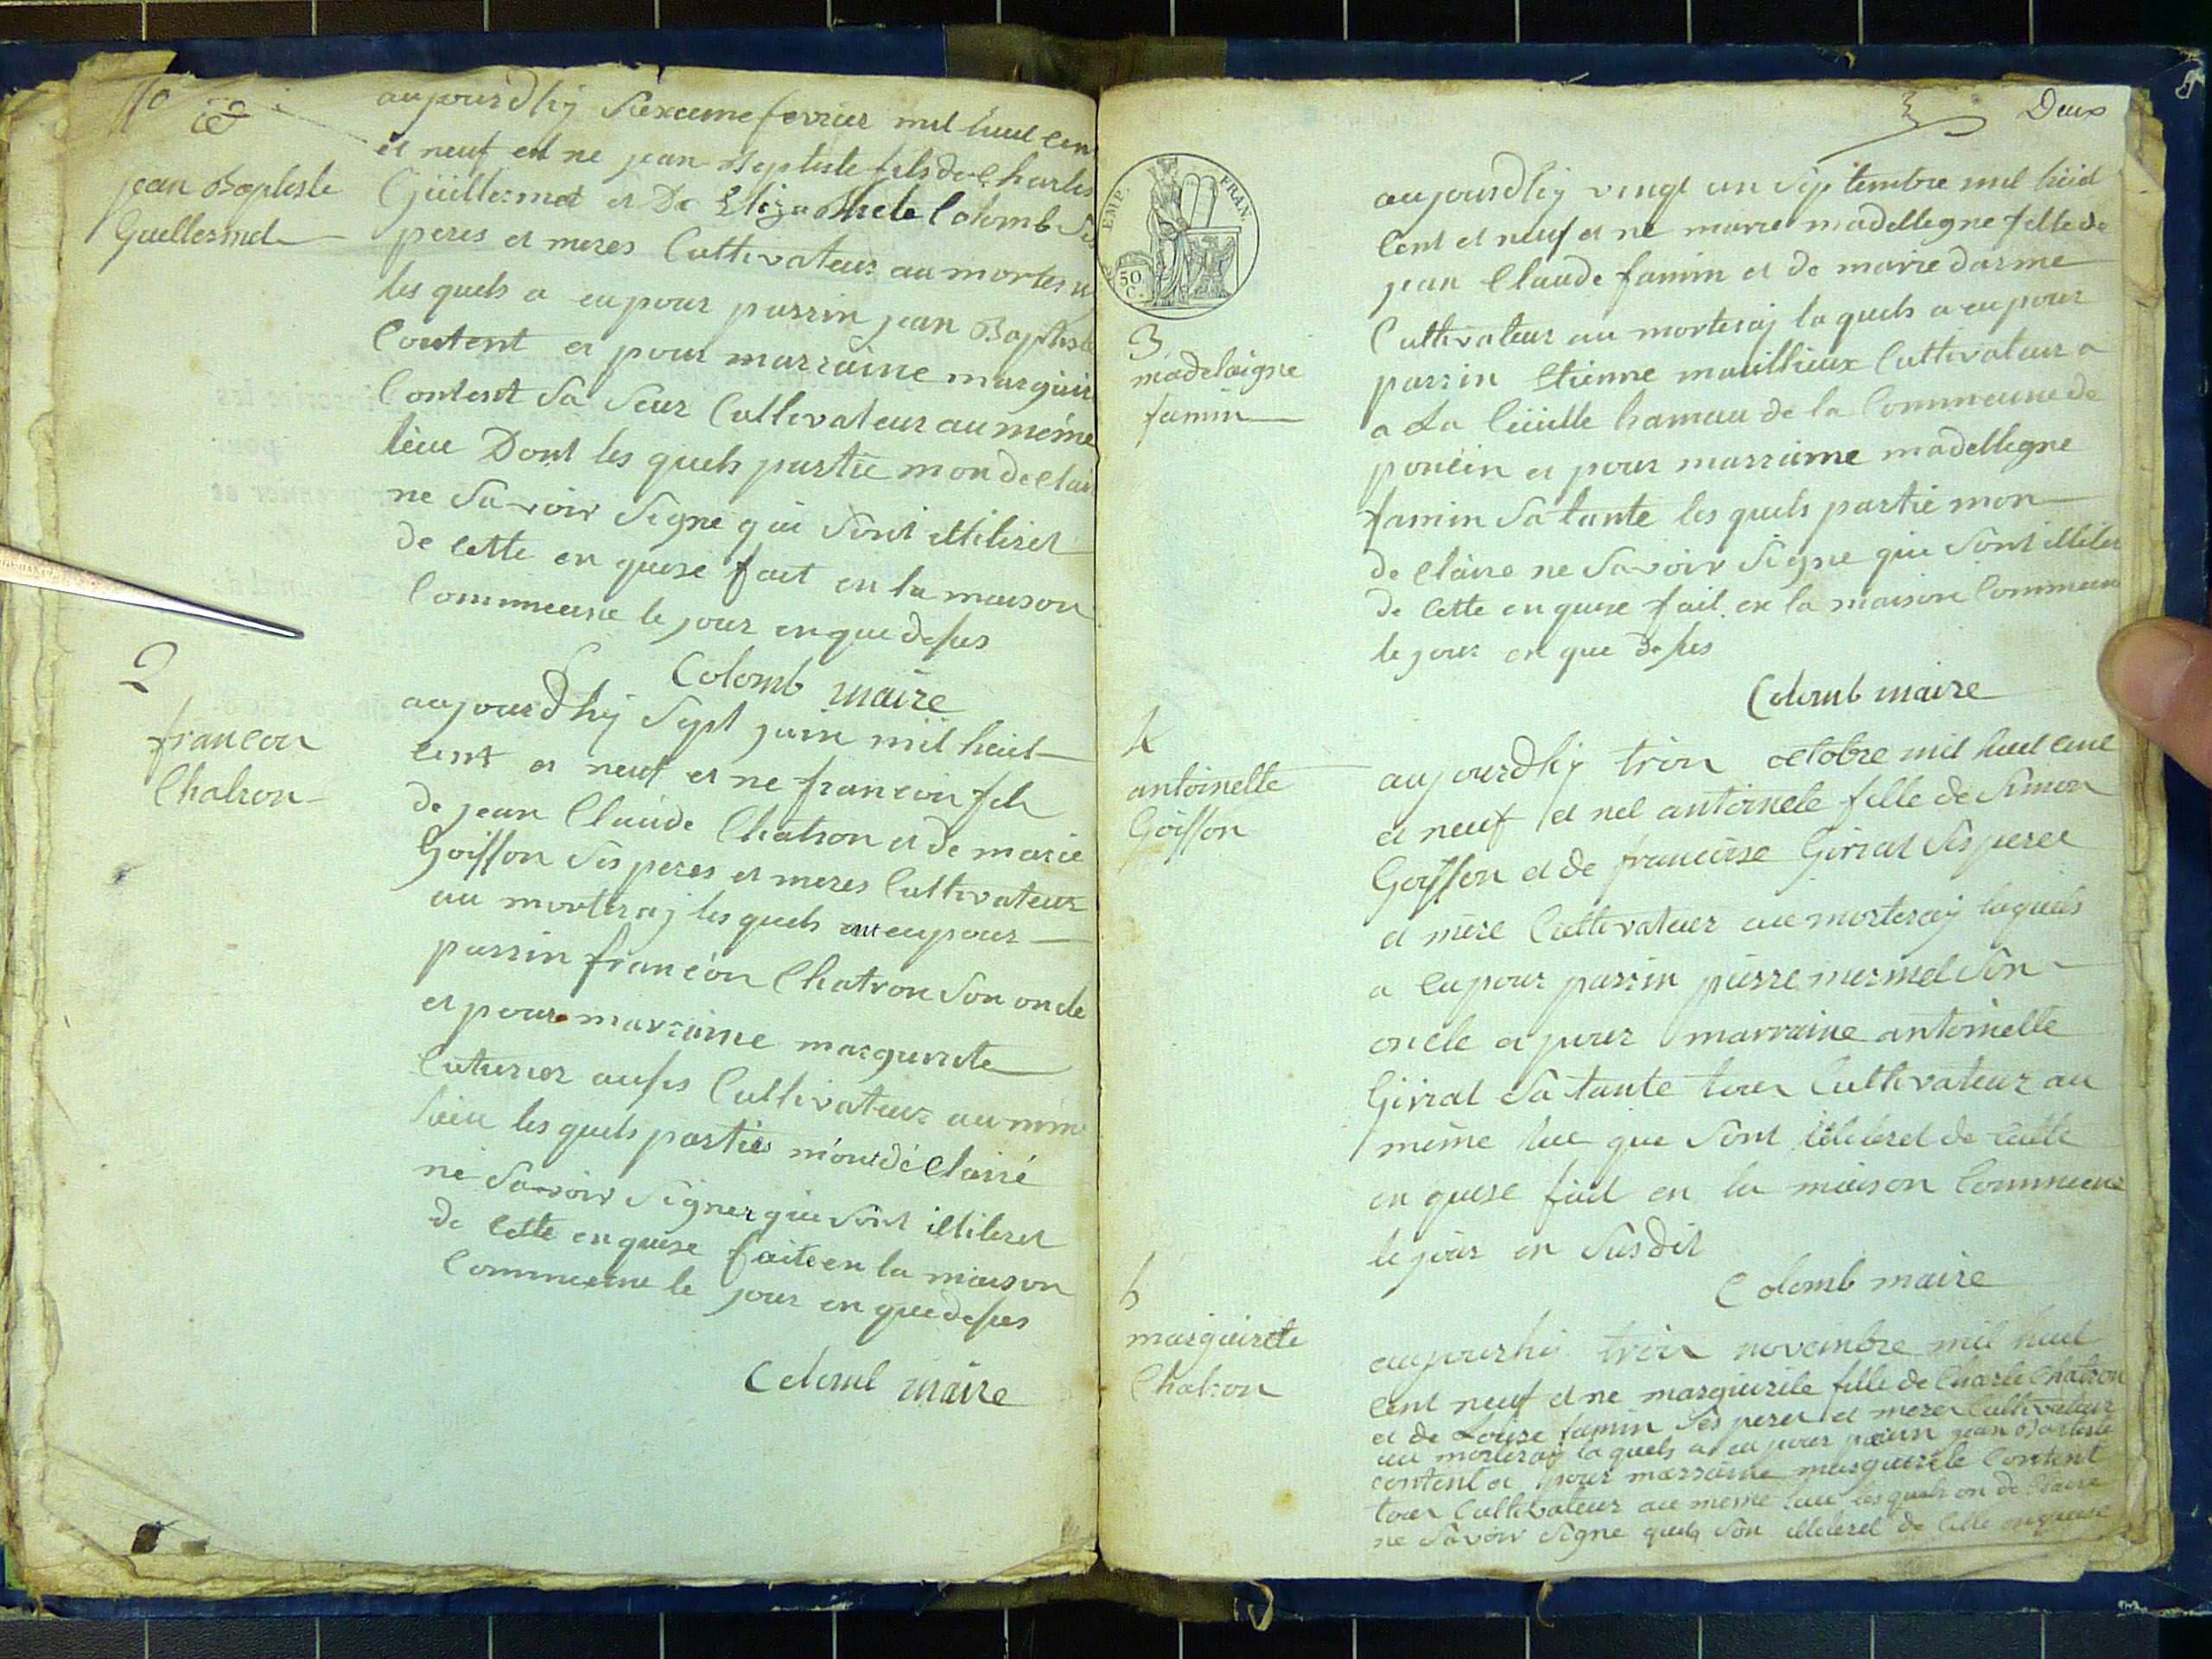 N°
jean Baptiste
Guillermet
aujourdhÿ sixceme fevrier mil huit cen
et neuf est ne jean Baptiste fils de Charles
Guillermet et De Elizabhete Colomb ses
peres et meres Cultivateur au morteraÿ
les quels a eu pour parrin jean Baptiste
Contemt et pour marraine marguir
Contemt sa seur Cultivateur au même
lieu Dont les quels partie mon declair
ne savoir signe qui sont illiteret
de cette en quise fait en la maison
Communne le jour en que desus
Colomb maire
2
francoi
Chatron
aujourdhÿ sept juin mil huit
cent et neuf et ne francoi fils
de jean Claude Chatron et de marie
Goiffon ses peres et meres Cultivateur
au morteraÿ les quels eu pour
parrin francoi Chatron son oncle
et pour marraine marguirite
Cuturier ausis Cultivateur au mem
lieu les quels partie m'ont déclairé
ne savoir signer qui sont illiteret
de cette en quise faite en la maison
Communne le jour en que desus
Colomb maire
Deux
EMP. FRAN.
50 C.
3
madelaigne
famin
aujourdhÿ vingt un septembre mil huit
cent et neuf et ne marie madellegne fille de
jean Claude famin et de marie darme
Cultivateur au morteraÿ la quels a eu pour
parrin Etienne mauillieux Cultivateur a
a La hameau de la Communne de
poncin et pour marraine madellegne
famin sa tante les quels partie mon
de claire ne savoir signe qui sont illiter
de cette en quise fait en la maison Commun
le jour en que desus
Colomb maire
4
antoinette
Goiffon
aujourdhÿ troi octobre mil huit cent
et neuf et net antoinete fille de Simon
Goiffon et de francoise Girrat ses peres
et mere Cultivateur au morteraÿ laquels
a eu pour parrin pierre mermet son
oncle et pour marraine antoinette
Girrat sa tante tous Cultivateur au
même lieu que sont illiteret de cette
en quise fait en la maison Communne
le jour en susdit
Colomb maire
5
marguirite
Chatron
aujourhÿ troi novembre mil huit
cent neuf et ne marguirite fille de Charle Chatron
et de Louise famin ses peres et meres Cultivateur
au morteraÿ la quels a eu pour parin jean Batiste
content et pour marraine marguirite Content
tous Cultivateur au meme lieu les quels on de claire
ne savoir signe quels son illiteret de cette enquise